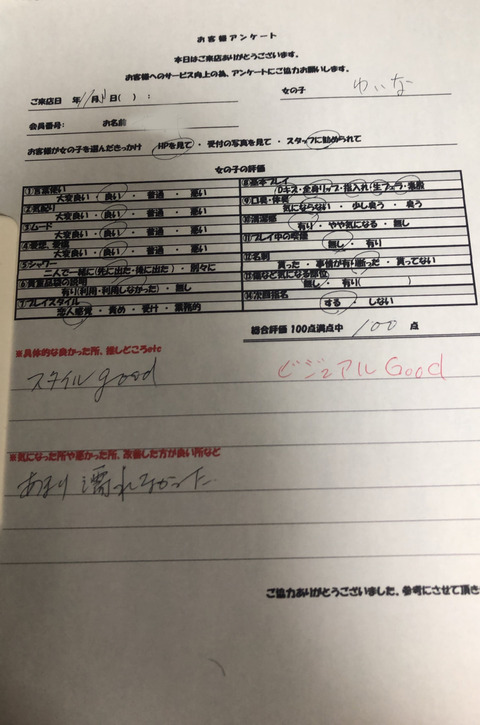 お客様アンケート
本日はご来店ありがとうございます。
お客様へのサービス向上の為、アンケートにご協力お願いします。
ご来店日 年11月 日( ): 女の子 ゆいな
会員番号: お名前
お客様が女の子を選んだきっかけ HPを見て ・ 受付の写真を見て ・ スタッフに勧められて
女の子の評価
①言葉使い
大変良い ・ 良い ・ 普通 ・ 悪い
②気配り
大変良い ・ 良い ・ 普通 ・ 悪い
③ムード
大変良い ・ 良い ・ 普通 ・ 悪い
④愛想、愛嬌
大変良い ・ 良い ・ 普通 ・ 悪い
⑤シャワー
二人で一緒に(先に出た・後に出た) ・ 別々に
⑥貴重品袋の説明
有り(利用・利用しなかった) ・ 無し
⑦プレイスタイル
恋人感覚 ・ 責め ・ 受け ・ 業務的
⑧基本プレイ
Dキス・全身リップ・指入れ・生フェラ・素股
⑨口臭・体臭
気にならない ・ 少し臭う ・ 臭う
⑩清潔感
有り ・ やや気になる ・ 無し
⑪プレイ中の
無し ・ 有り
⑫名刺
貰った ・ 事情が有り断った ・ 貰ってない
⑬傷など気になる部位
無し ・ 有り( )
⑭次回指名
する ・ しない
総合評価 100点満点中 100 点
※具体的な良かった所、推しどころetc
スタイルgood ビジュアルGood
※気になった所や悪かった所、改善した方が良い所など
あまり濡れなかった
ご協力ありがとうございました、参考にさせて頂き